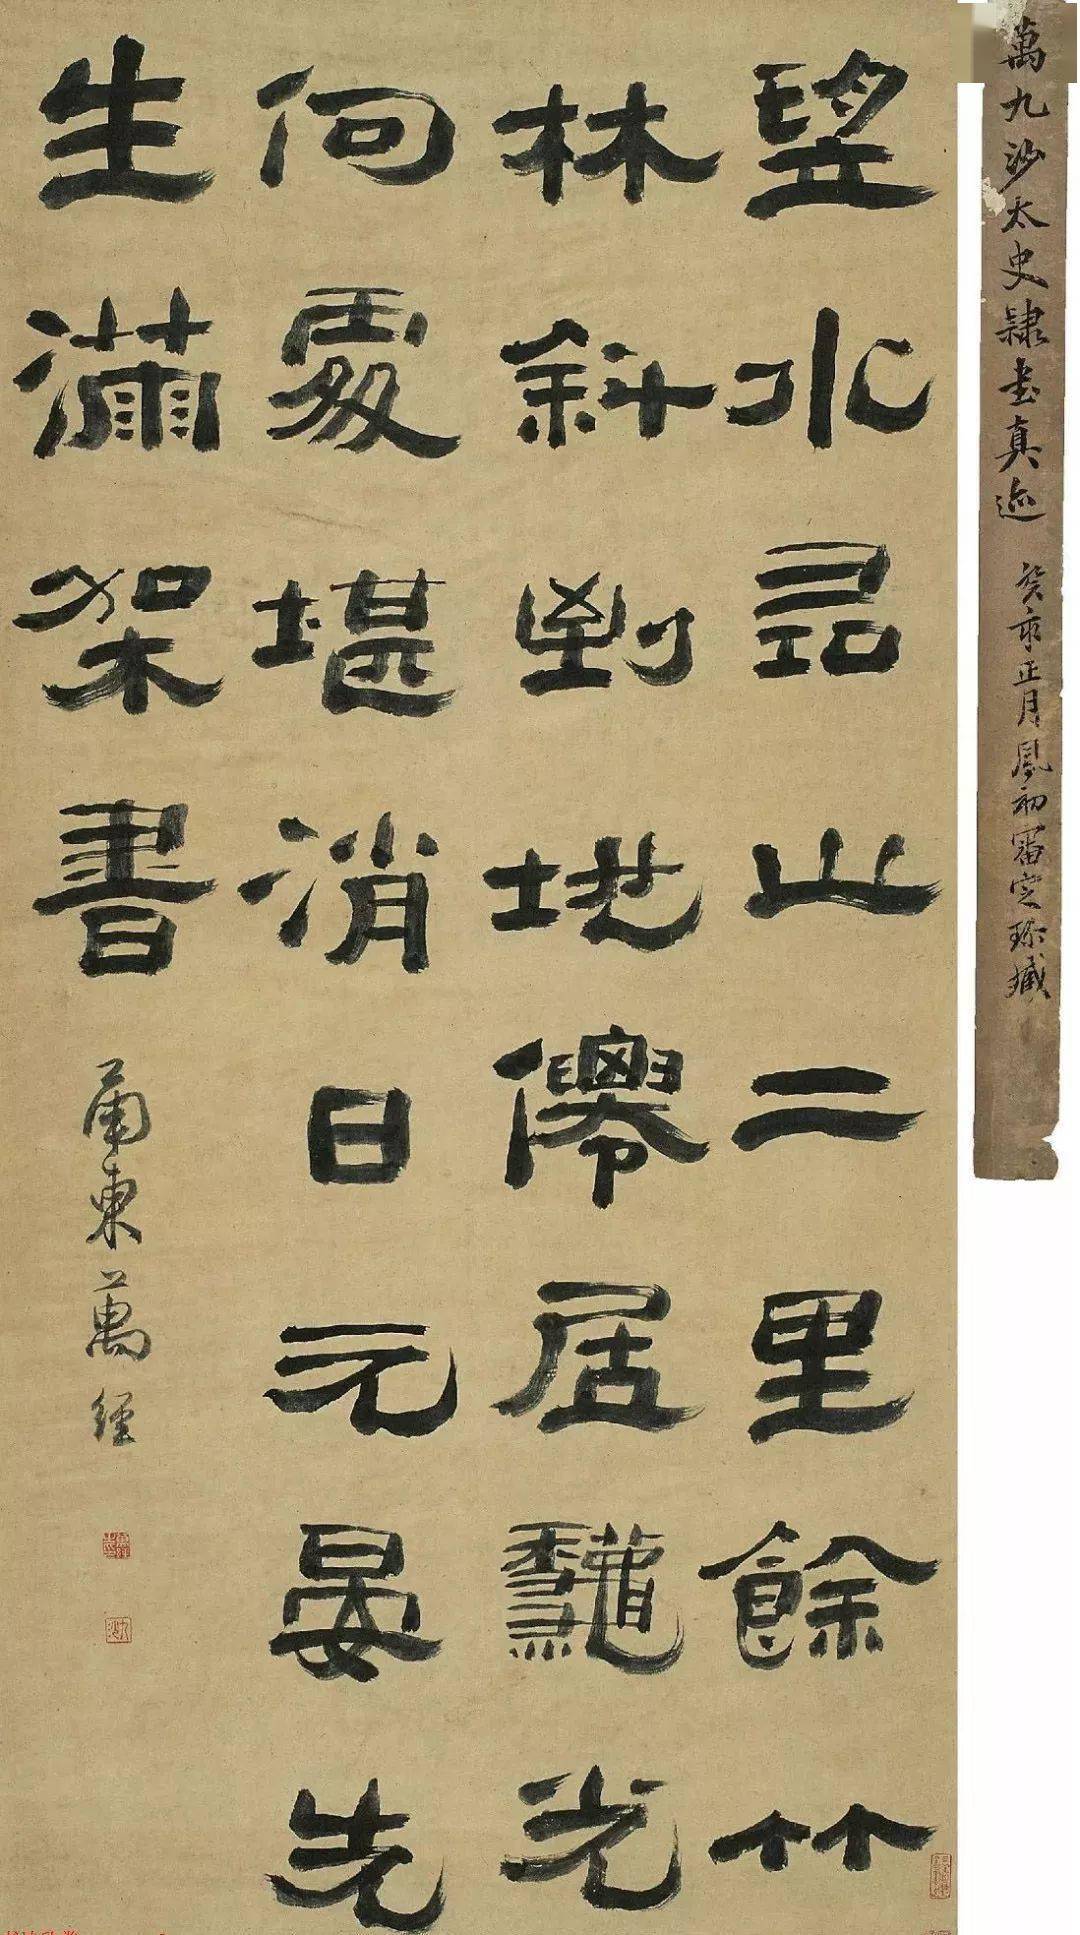 萬九沙太史隸書真迹 癸亥正月鳳初審定珍藏
望水尋山二里餘竹
林斜到地僊居龝光
何處堪消日元晏先
生滿架書
甬東萬經
九沙